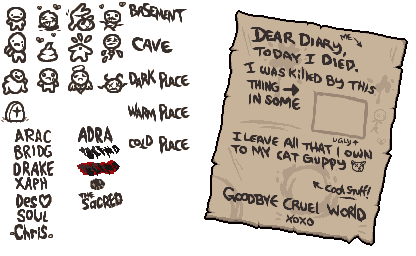 BASEMENT
CAVE
DARK PLACE
WARM PLACE
COLD PLACE
ARAC
BRIDG
DRAKE
XAPH
Des♡
SOUL
.Chris.
ADRA
THE
SACRED
DEAR DIARY,
ME
TODAY I DIED.
I WAS KILLED BY THIS
THING →
IN SOME
UGLY↑
I LEAVE ALL THAT I OWN
TO MY CAT GUPPY
↖ Cool Stuff!
GOODBYE CRUEL WORLD
XOXO